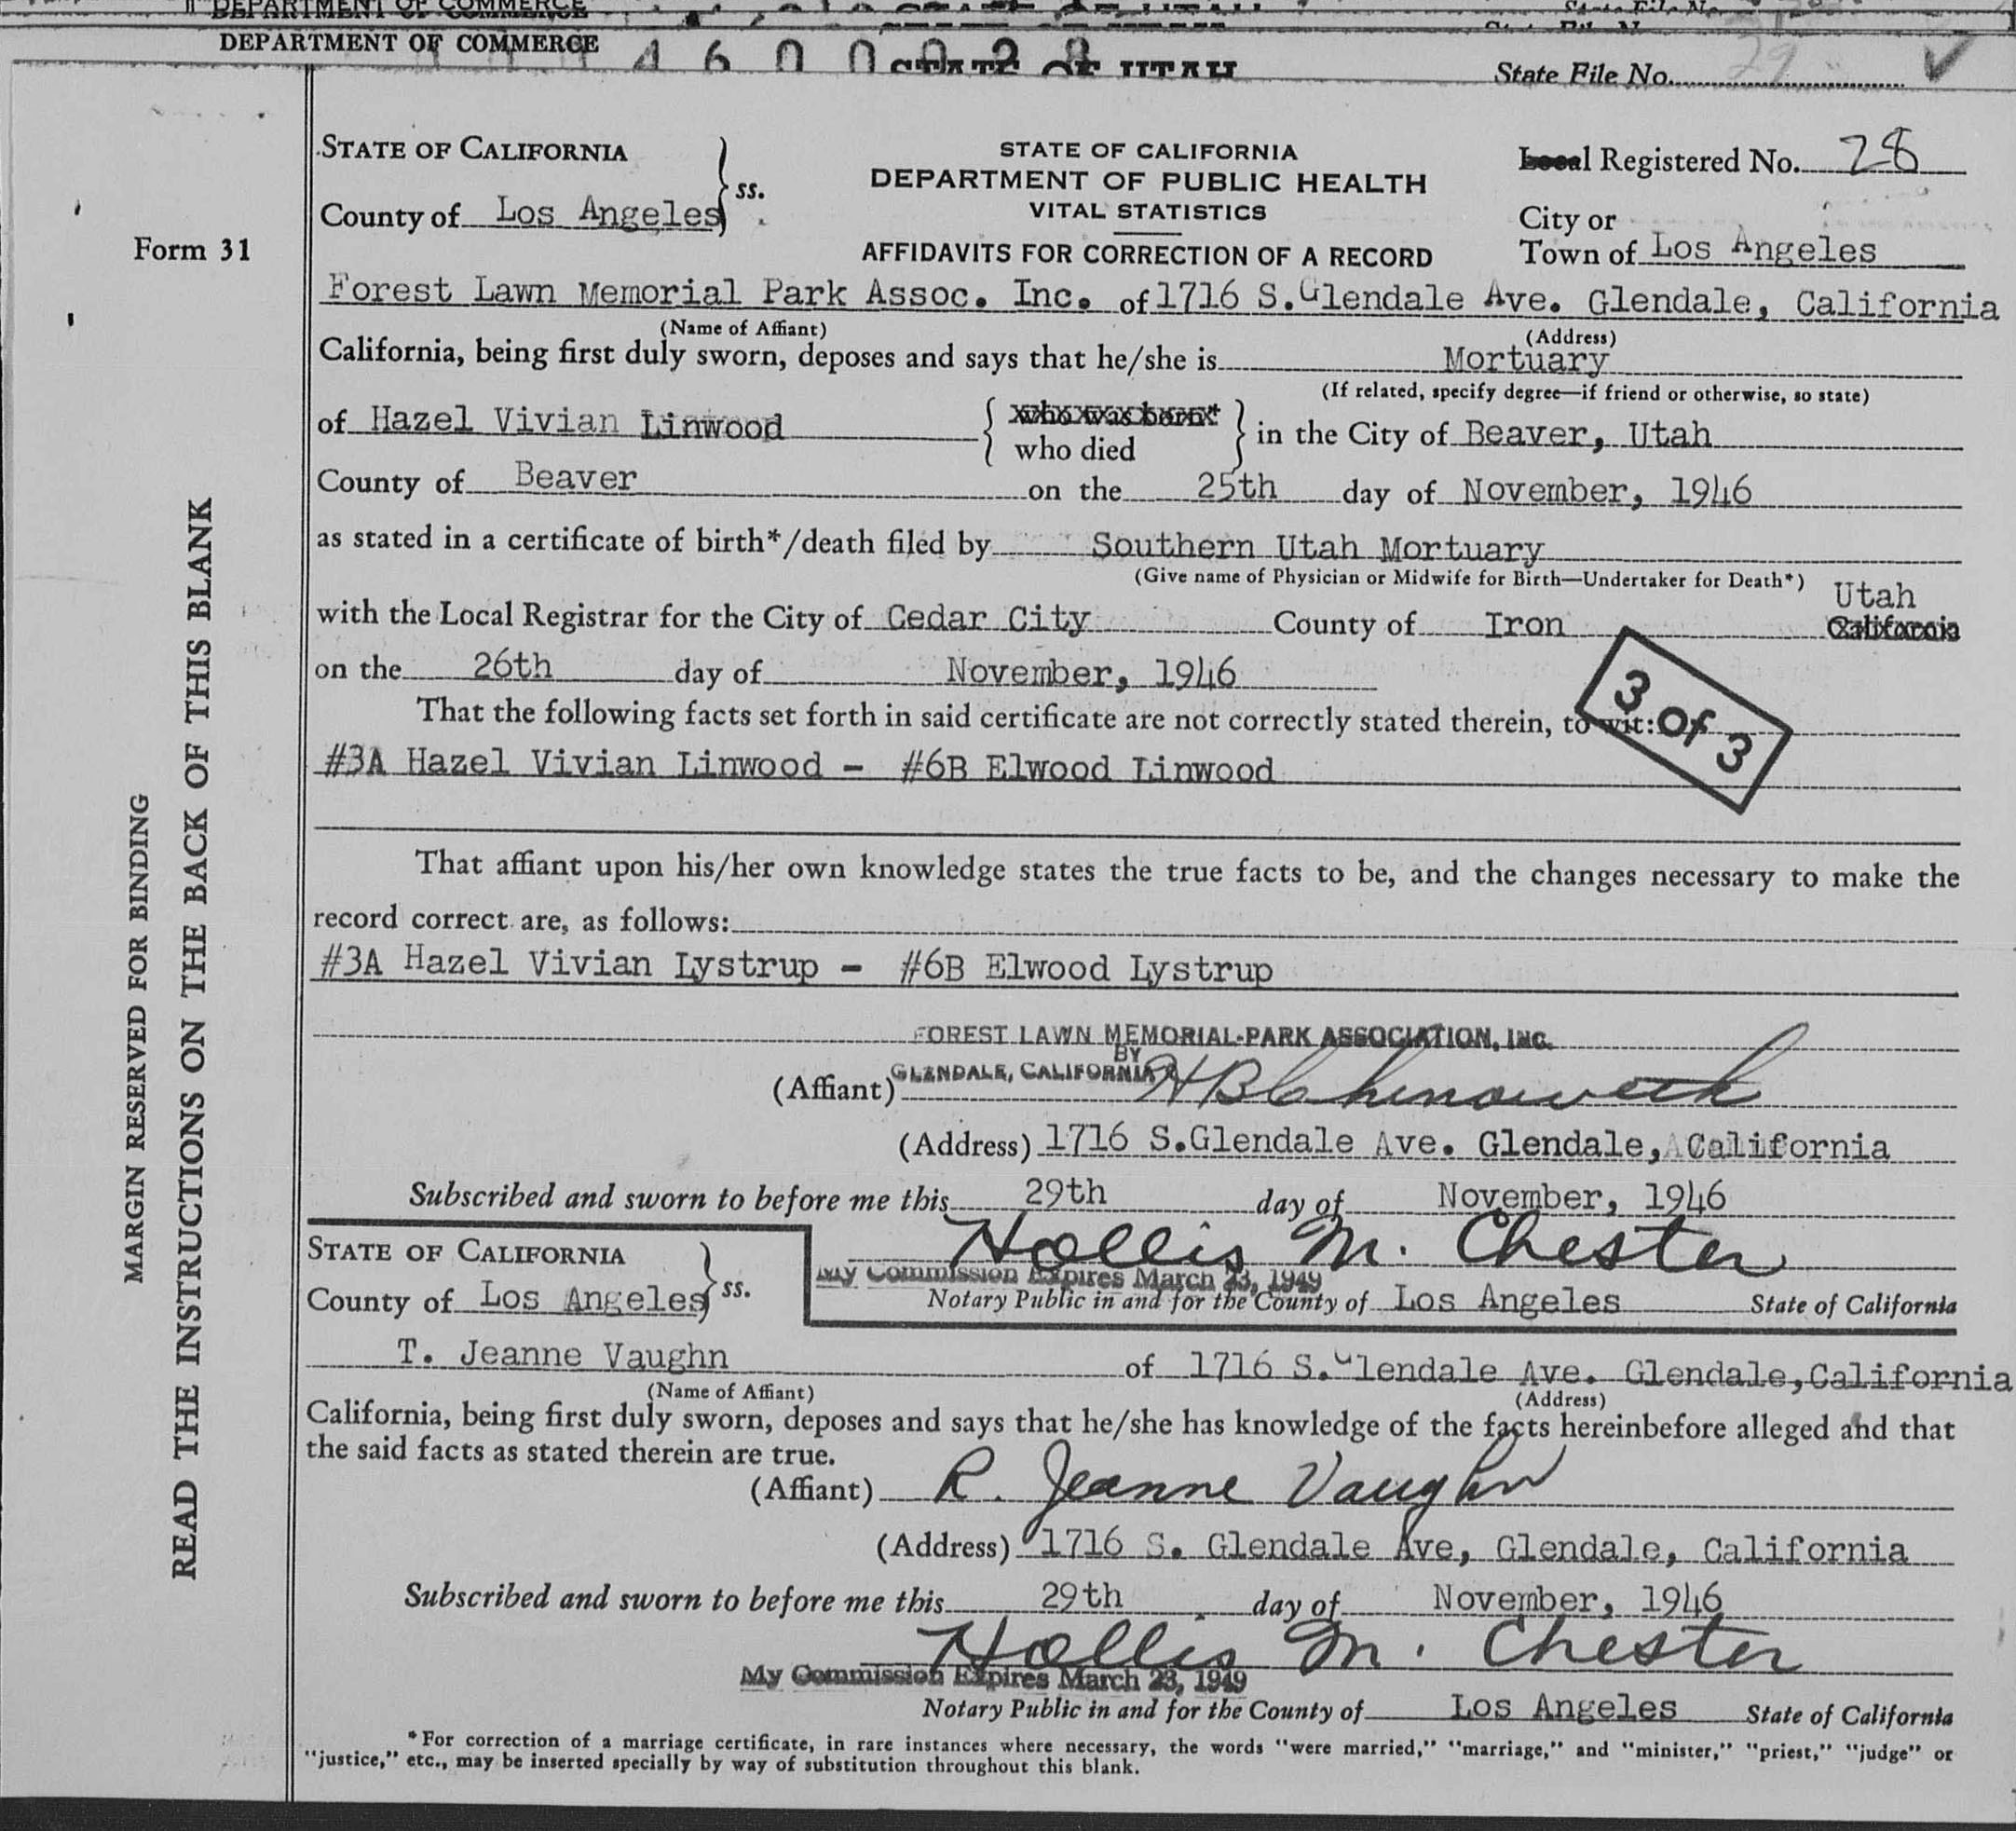 DEPARTMENT OF COMMERCE
DEPARTMENT OF COMMERCE STATE OF UTAH
State File No. 29
STATE OF CALIFORNIA
County of Los Angeles
ss.
STATE OF CALIFORNIA
DEPARTMENT OF PUBLIC HEALTH
VITAL STATISTICS
AFFIDAVITS FOR CORRECTION OF A RECORD
Local Registered No. 28
City or
Town of Los Angeles
Form 31
Forest Lawn Memorial Park Assoc. Inc. of 1716 S. Glendale Ave. Glendale, California
(Name of Affiant) (Address)
California, being first duly sworn, deposes and says that he/she is Mortuary
(If related, specify degree—if friend or otherwise, so state)
of Hazel Vivian Linwood { who was born* who died } in the City of Beaver, Utah
County of Beaver on the 25th day of November, 1946
as stated in a certificate of birth*/death filed by Southern Utah Mortuary
(Give name of Physician or Midwife for Birth—Undertaker for Death*)
Utah
with the Local Registrar for the City of Cedar City County of Iron California
on the 26th day of November, 1946
That the following facts set forth in said certificate are not correctly stated therein, to wit:
3 of 3
#3A Hazel Vivian Linwood - #6B Elwood Linwood
That affiant upon his/her own knowledge states the true facts to be, and the changes necessary to make the
record correct are, as follows:
#3A Hazel Vivian Lystrup - #6B Elwood Lystrup
FOREST LAWN MEMORIAL-PARK ASSOCIATION, INC.
BY
GLENDALE, CALIFORNIA
(Affiant) H B Chenoweth
(Address) 1716 S.Glendale Ave. Glendale, California
Subscribed and sworn to before me this 29th day of November, 1946
Hollis M. Chester
My Commission Expires March 23, 1949
Notary Public in and for the County of Los Angeles State of California
STATE OF CALIFORNIA
County of Los Angeles
ss.
T. Jeanne Vaughn of 1716 S. Glendale Ave. Glendale, California
(Name of Affiant) (Address)
California, being first duly sworn, deposes and says that he/she has knowledge of the facts hereinbefore alleged and that
the said facts as stated therein are true.
(Affiant) R. Jeanne Vaughn
(Address) 1716 S. Glendale Ave, Glendale, California
Subscribed and sworn to before me this 29th day of November, 1946
Hollis M. Chester
My Commission Expires March 23, 1949
Notary Public in and for the County of Los Angeles State of California
*For correction of a marriage certificate, in rare instances where necessary, the words "were married," "marriage," and "minister," "priest," "judge" or
"justice," etc., may be inserted specially by way of substitution throughout this blank.
MARGIN RESERVED FOR BINDING
READ THE INSTRUCTIONS ON THE BACK OF THIS BLANK